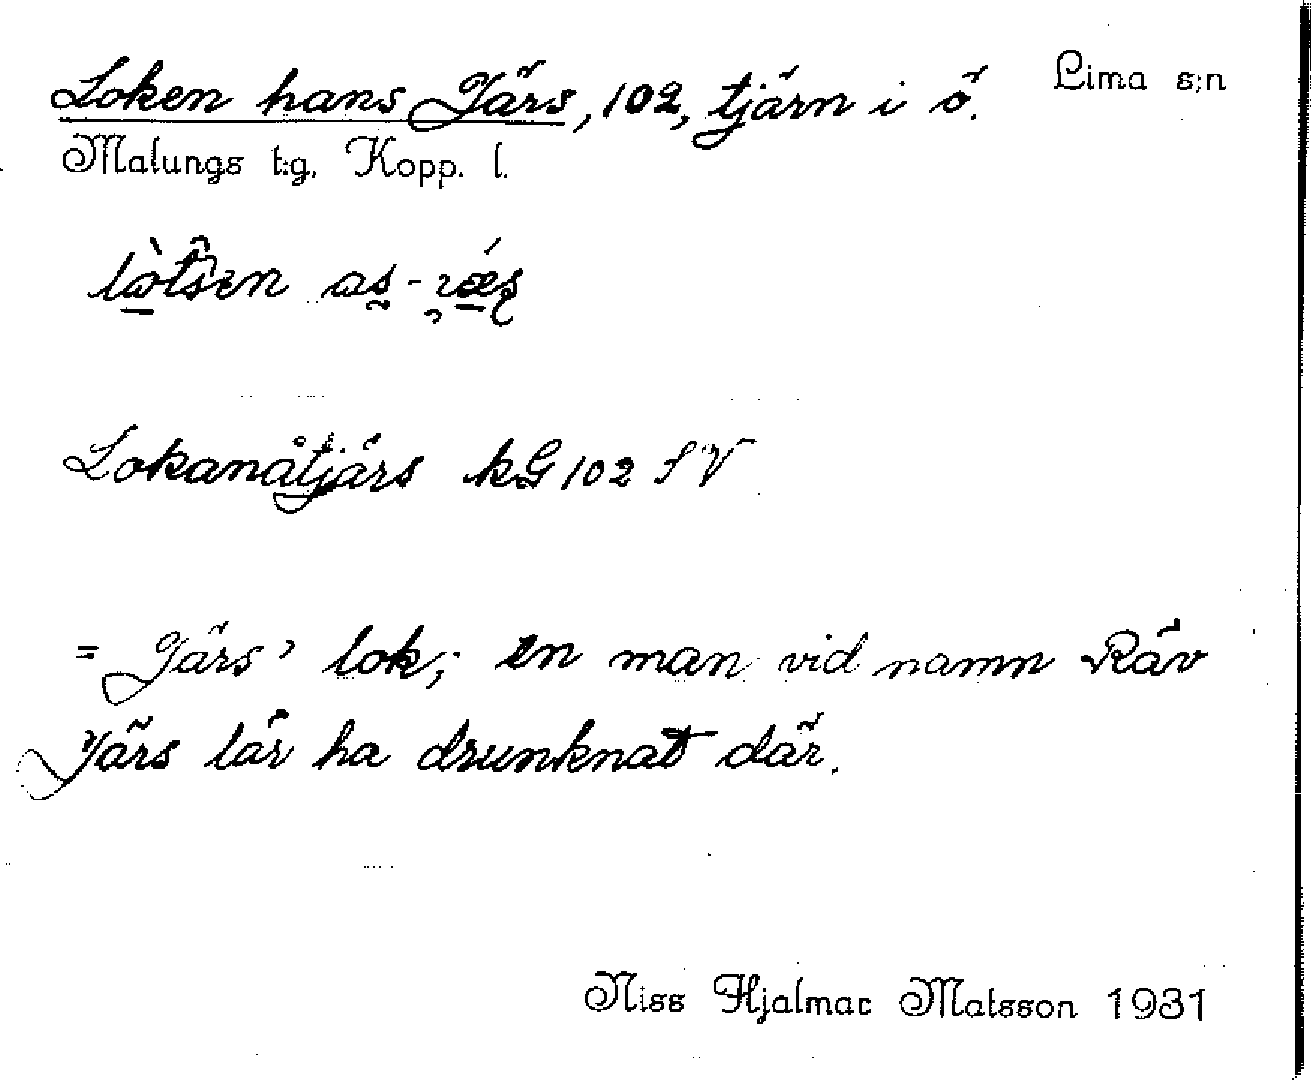 Loken hans Järs, 102, tjärn i ö. Lima s:n
Malungs t:g. Kopp. l.
Lokanåtjärs kG 102 SV
= Järs' lok; en man vid namn Räv
Järs lär ha drunknat där.
Niss Hjalmar Matsson 1931